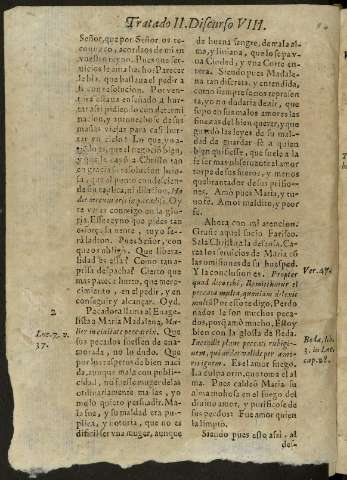 Tratado II. Discurso VIII.
Señor, que por Señor os re-
conozco, acordaos de mi en
vuestro reyno. Pues que ser-
vicios le ama hechos? Parecer
le hia, que bastava el pedir a
con resolucion. Por ven-
tura estava enseñado a hurtar
assi pidiendo con determi-
nacion, y aprovechose de sus
mañas viejas para casi hur-
tar vn cielo? Lo que yo
es, que el negociò bien,
y que le cayò a Christo tan
en gracia su resolucion
que al punto condescien-
de sin replica, ni dilacion. Ho-
die mecum eris in paradiso. Oy
te veràs conmigo en la glo-
ria. Esse reyno que pides tan
esforçadamente, tuyo se-
rà ladron. Pues Señor, con
que os obligò. Que libera-
lidad es essa? Como tan a-
prissa despacha? Cierto que
mas parece hurto, que mere-
cimiento, en el pedir, y en
conseguir y alcançar. Oyd.
2 Pecadora llama al Evage-
lista a Maria Madalena, Mu-
lier in civitate peccatrix. Que
sus pecados fuessen de ena-
morada, no lo dudo. Que
por los respetos de bien naci-
da, aunque mala con publici-
dad, no fuesse muger de las
ordinariamente malas, yo
me lo quiero persuadir. Ma-
la fue, y su maldad era pu-
blica, y notoria, que no es
dificil ser vna muger, aunque
Luc. 7. v.
37.
de buena sangre, de mala al-
ma, y liviana, que lo sepa v-
na Ciudad, y vna Corte en-
tera. Siendo pues Madale-
na tan discreta, y entendida,
como siempre se nos represen-
ta, yo no dudaria dezir, que
supo en sus malos amores las
finezas del bien querer, y que
guardò las leyes de su mal-
dad de guardar fè a quien
bien quisiesse, que suele a la
fè ser mas observante el amor
torpe de sus fueros, y menos
quebrantador de sus prisio-
nes. Amò pues Maria, y tu-
vo fè. Amor maldito, y peor
fè.
Ahora con mi atencion:
Gruñe aquel sucio Fariseo.
Sale Christo a la defensa. Ca-
rea los servicios de Maria cò
las omisiones de su huesped.
Y la conclusion es. Propter
quod dico tibi, Remittuntur ei
peccata multa, quoniam dilexit
multũ. Por esso te digo, Perdo-
nados le son muchos peca-
dos, porq amò mucho. Estoy
bien con la glossa de Beda.
Incendit plane peccati rubigi-
nem, quia ardet valide per amo-
ris ignem. Es el amor fuego.
La culpa orin, customa el al
ma. Pues caldeò Maria su
alma mohosa en el fuego del
divino amor, y purificose de
sus pecados: Fue amor quien
la limpiò.
Siendo pues esto assi, al
des-
Ver. 47.
Beda, lib.
3. in Luc.
cap. 28.